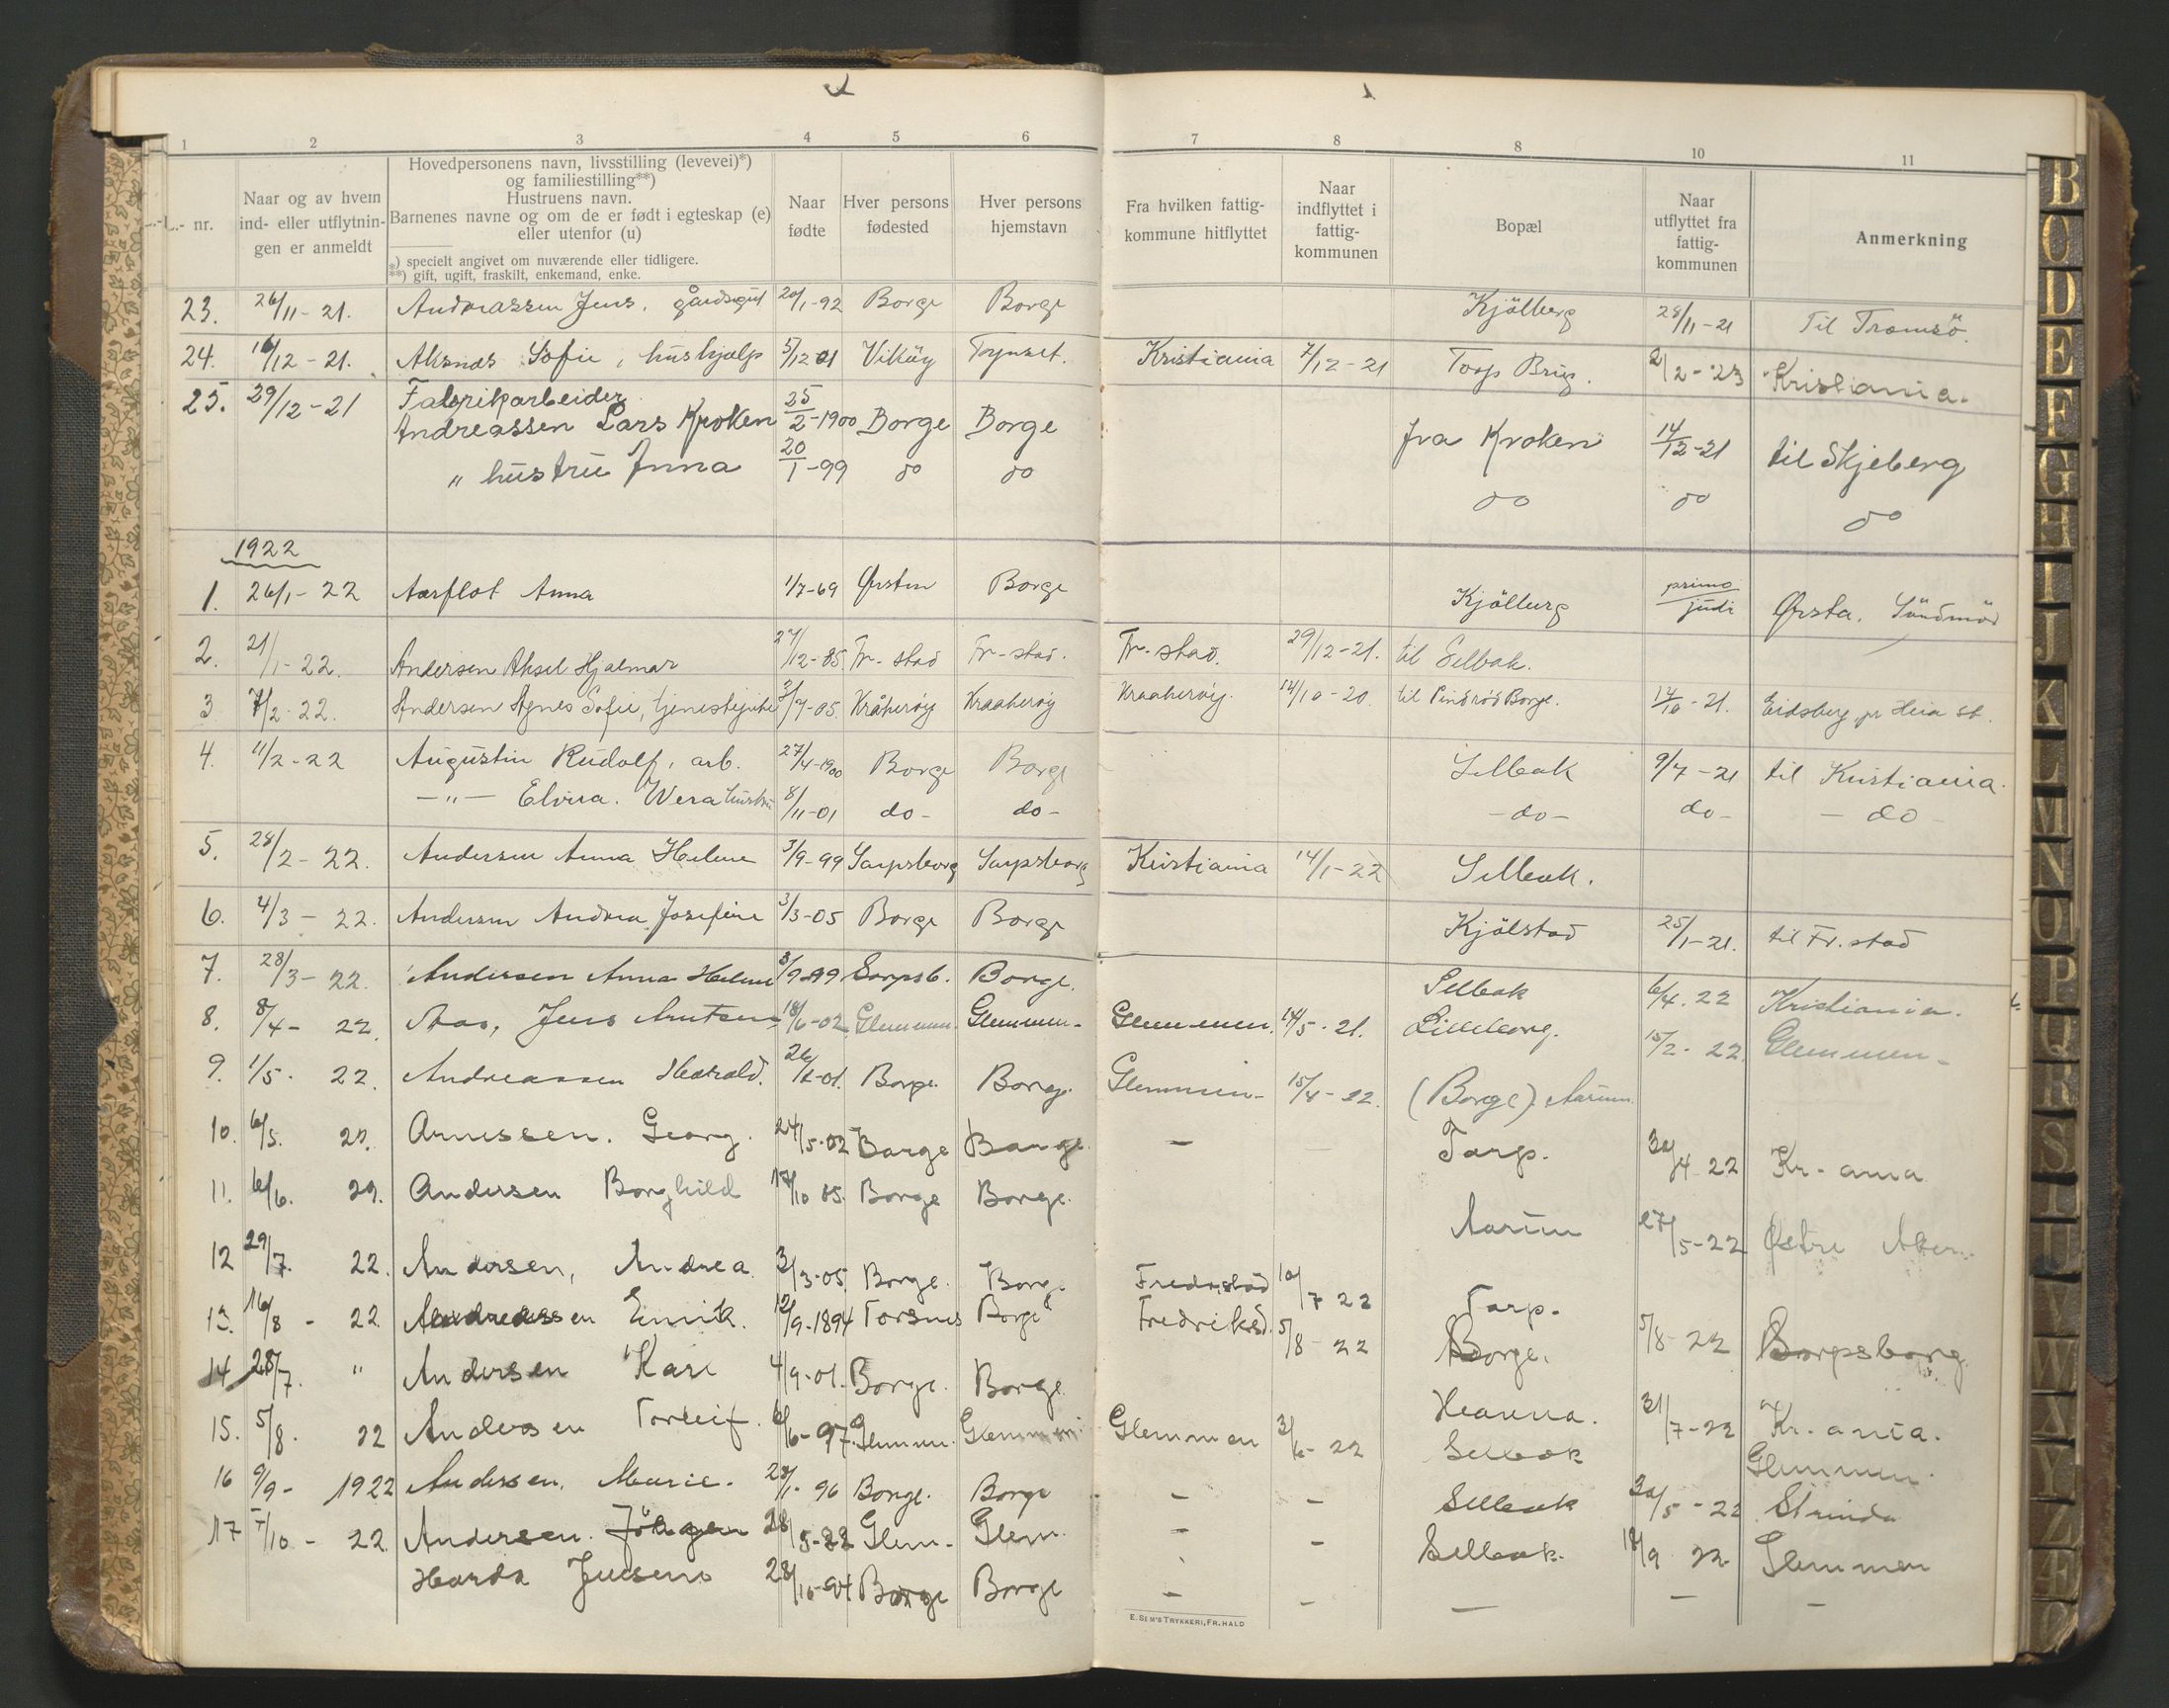 1 2 3 4 5 6 7 8 8 10 11
L.- nr.
Naar og av hvem
ind- eller utflytnin-
gen er anmeldt
Hovedpersonens navn, livsstilling (levevei)*)
og familiestilling**)
Hustruens navn.
Barnenes navne og om de er født i egteskap (e)
eller utenfor (u)
*) specielt angivet om nuværende eller tidligere.
**) gift, ugift, fraskilt, enkemand, enke.
Naar
fødte
Hver persons
fødested
Hver persons
hjemstavn
Fra hvilken fattig-
kommune hitflyttet
Naar
indflyttet i
fattig-
kommunen
Bopæl
Naar
utflyttet fra
fattig-
kommunen
Anmerkning
23. 26/11-21. Andreassen Jens, gårdsgut 20/1-92 Borge Borge Kjölberg 28/11-21 Til Tromsö.
24. 16/12-21. Aksnes Sofie, hushjælp 5/12 01 Viköy Tynset. Kristiania 7/12-21 Torp Brug. 2/2-23 Kristiania.
25. 29/12-21 Fabrikarbeider
Andreassen Lars Kroken 25/2-1900 Borge Borge fra Kroken 14/12-21 til Skjeberg
" hustru Inna 20/1-99 do do do do do
1922
1. 26/1-22 Aarflot Anna 1/7-69 Ørsten Borge Kjölberg primo juli Ørsta. Söndmör
2. 21/1-22. Andersen Aksel Hjalmar 27/12-85. Fr-stad Fr-stad. Fr-stad. 29/12-21. til Selbak.
3 7/2-22. Andersen Agnes Sofie, tjenestejente 3/7-05. Kråkeröy Kraakeröy Kraakeröy. 14/10-20. til Lindröd Borge. 14/10-21. Eidsberg pr Heia st.
4. 11/2-22 Augustin Rudolf, arb. 27/4-1900 Borge Borge Selbak 9/7-21 til Kristiania.
-"- Elvira. Wera hustru 8/11-01 do- do- -do- do- -do-
5. 28/2-22. Andersen Anna Helene 3/9-99 Sarpsborg Sarpsborg Kristiania 14/1-22 Selbak.
6. 4/3-22. Andersen Andrea Josefine 3/3-05 Borge Borge Kjölstad 25/1-21. til Fr. stad
7. 28/3-22. Andersen Anna Helene 3/9-99 Sarpsb. Borge. Selbak 6/4.22 Kristiania.
8. 8/4-22. Aas, Jens Arntsen 18/6-02 Glemmen. Glemmen- Glemmen. 14/5-21. Lilleborg. 15/2-22. Glemmen-
9. 1/5. 22. Andreassen Harald. Borge. Borge. Glemmen- 15/4-22. (Borge). Aarum.
10. 6/5. 22. Arnessen. Georg. 24/5-02 Borge Borge - Torp. 30/4-22 Kr-ania
11. 6/6. 22. Andersen Borghild 17/10 05. Borge Borge. Aarum 27/5-22 Østre Aker.
12 29/7. 22. Andersen, Andrea 3/3-05. Borge. Borge Fredrstad 10/7 22 Torp.
13. 16/8-22 Andreassen Emil. 12/9-1894 Torsnes Borge Fredriksd. 5/8-22 Borge. 5/8-22 Sarpsborg.
14 28/7. " Andersen Kari 4/9-01. Borge. Borge Heanna. 31/7-22 Kr.ania.
15. 5/8. 22 Andersen Torleif. 6/6-97. Glemmen. Glemmen. Glemmen 3/6-22 Selbak Glemmen.
16 9/9-1922 Andersen. Marie. 96 Borge. Borge - - Selbak 30/5-22 Strinda
17 7/10-22. Andersen. Jörgen Glem- Glem. - - Selbak. 18/9 22 Glemmen
Harda Jensens 28/10-94 Borge Borge - - - - -
E. Sem's Trykkeri, Fr.hald
B
C
D
E
F
G
H
I
J
K
L
M
N
O
P
Q
R
S
T
U
V
W
X
Y
Z
Æ
Ø